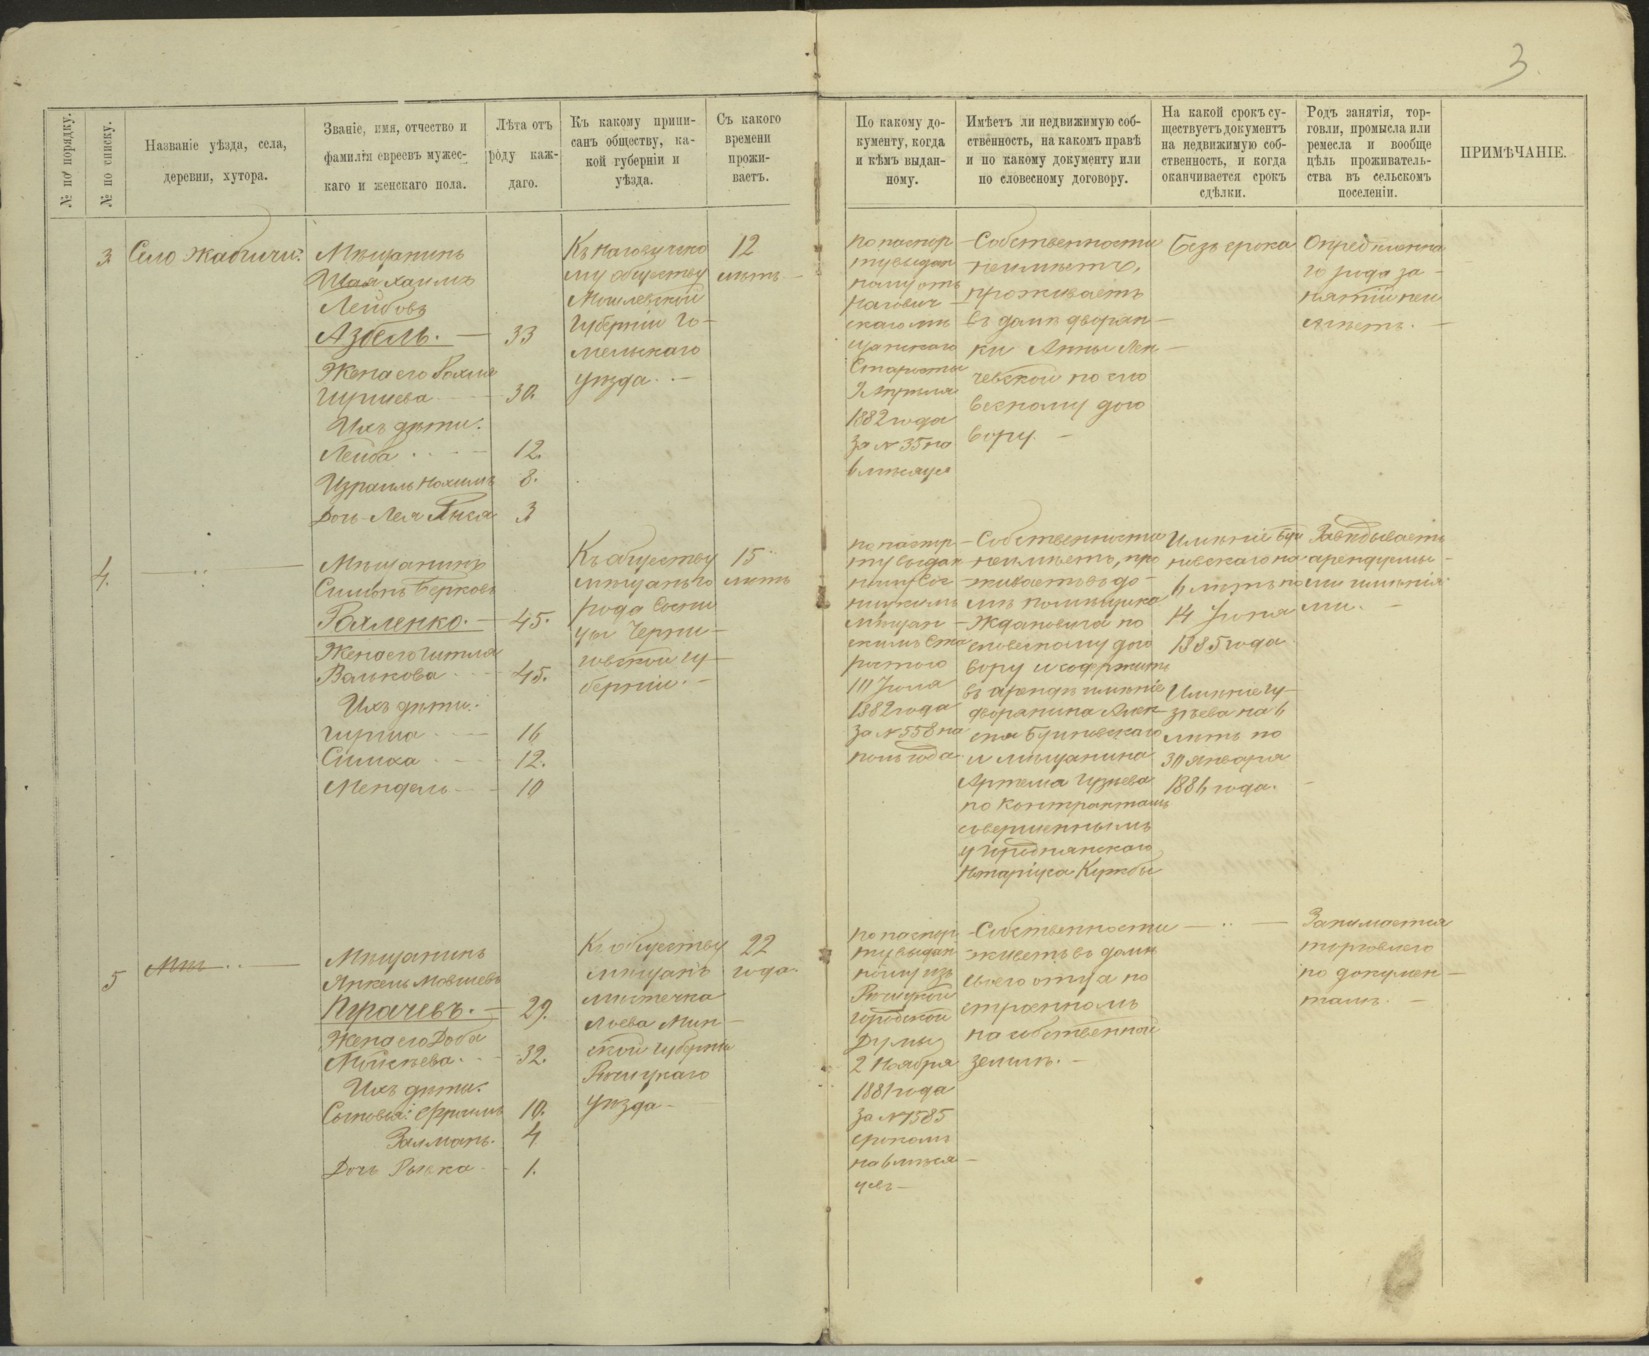 3
№ по порядку.
№ по списку.
Названіе уѣзда, села,
деревни, хутора.
Званіе, имя, отчество и
фамилія евреевъ мужес-
каго и женскаго пола.
Лѣта отъ
роду каж-
даго.
Къ какому припи-
санъ обществу, ка-
кой губерніи и
уѣзда.
Съ какого
времени
прожи-
ваетъ.
По какому до-
кументу, когда
и кѣмъ выдан-
ному.
Имѣетъ ли недвижимую соб-
ственность, на какомъ правѣ
и по какому документу или
по словесному договору.
На какой срокъ су-
ществуетъ документъ
на недвижимую соб-
ственность, и когда
оканчивается срокъ
сдѣлки.
Родъ занятія, тор-
говли, промысла или
ремесла и вообще
цѣль проживатель-
ства въ сельскомъ
поселеніи.
ПРИМѢЧАНІЕ.
3
Село Жабичи
Мѣщанинъ
Хаимъ
Лейбовъ
Азбель. 33
Жена его
30.
Ихъ дѣти:
Лейба 12.
Израиль Нохимъ 8.
Дочь Лея 3
му обществу
Могилевской
Губерніи Го-
мельскаго
уѣзда.
12
лѣтъ
по паспор-
ту выдан-
ному отъ
Старосты
1882 года
за № 35 на
6 мѣсяцев
Собственности
неимѣетъ,
проживаетъ
въ домѣ дворян-
ки Анны
по сло
весному дого
вору.
Безъ срока
Опредѣленна
го рода за-
нятій неи
мѣетъ.
4.
Мѣщанинъ
Симонъ Берковъ
Рахленко. 45.
Жена его
Волкова 45.
Ихъ дѣти:
Гирша 16
Симха 12.
Мендель 10
Къ обществу
мѣщанъ го
рода Сосни
цы Черни-
говской гу-
берніи.
15
лѣтъ
по паспор-
ту выдан-
мѣщан-
скимъ Ста
ростою
10 Іюля
1882 года
за № 558 на
полгода
Собственности
неимѣетъ, про
живаетъ въ до-
мѣ помѣщика
Ждановича по
словесному дого
вору и содержитъ
въ арендѣ имѣніе
дворянина Алек-
и мѣщанина
Артема Гузѣева
по контрактамъ
совершеннымъ
у Городнянскаго
Нотаріуса
Имѣніе
на
6 лѣтъ по
14 Іюня
1885 года
Имѣніе Гу-
зѣева на 6
лѣтъ по
30 Января
1886 года.
Завѣдываетъ
арендуемы-
ми имѣнія-
ми.
5
Мѣщанинъ
Янкель Мовшевъ
Пугачевъ. 29.
Жена его Доба
Мойсѣева. 32.
Ихъ дѣти:
Сыновья: Ефроимъ 10.
Залманъ. 4
Дочь Рывка 1.
Къ обществу
мѣщанъ
мѣстечка
Лоева Мин-
ской губерніи
Рѣчицкаго
уѣзда
22
года.
по паспор-
ту выдан-
ному изъ
Рѣчицкой
городской
Думы
2 Ноября
1881 года
за № 1585
срокомъ
на 6 мѣся-
цевъ
Собственности
живетъ въ домѣ
своего отца по
строенномъ
на собственной
землѣ.
Занимается
торговлею
по докумен-
тамъ.